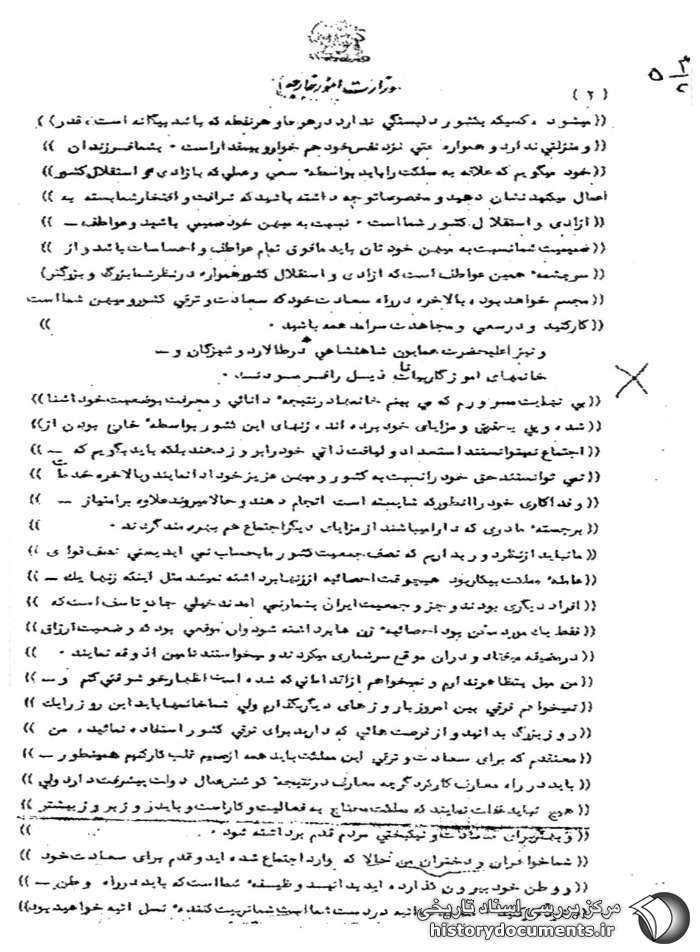 وزارت امور خارجه
۵ ۳/۲
(۲)
((میشود ، کسیکه بکشور دلبستگی ندارد در هر جا و هر نقطه که باشد بیگانه است ، قدر))
((و منزلتی ندارد و همواره حتی نزد نفس خود هم خوار و بیمقدار است . بشما فرزندان ))
((خود میگویم که علاقه به مملکت را باید بواسطه سعی و عملی که بازادی و استقلال کشور))
اعمال میکنید نشان دهید و مخصوصا توجه داشته باشید که شرافت و افتخار شما بسته به ))
((ازادی و استقلال کشور شما است . نسبت به میهن خود صمیمی باشید و عواطف ــ ))
((صمیمیت شما نسبت به میهن خودتان باید مافوق تمام عواطف و احساسات باشد و از ))
((سرچشمه همین عواطف است که ازادی و استقلال کشور همواره در نظر شما بزرگ و بزرگتر))
((مجسم خواهد بود ، بالاخره در راه سعادت خود که سعادت و ترقی کشور و میهن شما است
((کار کنید و در سعی و مجاهدت سرآمد همه باشید . ))
و نیز اعلیحضرت همایون شاهنشاهی در طالار دوشیزگان و ــ
خانمهای اموزگار بیانات ذیل را فرمودند .
((بی نهایت مسرورم که می بینم خانمها در نتیجه دانائی و معرفت بوضعیت خود اشنا))
((شده و پی بحقوق و مزایای خود برده اند ، زنهای این کشور بواسطه خارج بودن از))
((اجتماع نمیتوانستند استعداد و لیاقت ذاتی خود را بروز دهند بلکه باید بگویم که ــ ))
((نمی توانستند حق خود را نسبت به کشور و میهن عزیز خود ادا نمایند و بالاخره خدمات ))
((و فداکاری خود را انطور که شایسته است انجام دهند و حالا میروند علاوه بر امتیاز ــ ))
((برجسته مادری که دارا میباشند از مزایای دیگر اجتماع هم بهره مند گردند . ))
((ما نباید از نظر دور بداریم که نصف جمعیت کشور ما بحساب نمی امد یعنی نصف قوای ))
((عامله مملکت بیکار بود هیچوقت احصائیه از زنها برداشته نمیشد مثل اینکه زنها یک ــ ))
((افراد دیگری بودند و جزو جمعیت ایران بشمار نمی امدند خیلی جای تاسف است که ))
((فقط یک مورد ممکن بود احصائیه زن ها برداشته شود و ان موقعی بود که وضعیت ارزاق))
((در مضیقه میفتاد و در ان موقع سرشماری میکردند و میخواستند تامین اذوقه نمایند . ))
((من میل بتظاهر ندارم و نمیخواهم از اقداماتی که شده است اظهار خوشوقتی کنم و ــ))
((نمیخواهم فرقی بین امروز با روزهای دیگر بگذارم ولی شما خانمها باید این روز را یک ))
((روز بزرگ بدانید و از فرصت هائی که دارید برای ترقی کشور استفاده نمائید ، من ))
((معتقدم که برای سعادت و ترقی این مملکت باید همه از صمیم قلب کار کنیم همینطور ــ))
((باید در راه معارف کار کرد گرچه معارف در نتیجه کوشش عمال دولت پیشرفت دارد ولی ))
((هیچ نباید غفلت نمایند که مملکت محتاج به فعالیت و کار است و باید روز بروز بیشتر ))
((و بهتر برای سعادت و نیکبختی مردم قدم برداشته شود . ))
((شما خواهران و دختران من حالا که وارد اجتماع شده اید و قدم برای سعادت خود ))
((و وطن خود بیرون گذارده اید بدانید وظیفه شما است که باید در راه وطن ــ ))
اتیه در دست شما است شما تربیت کننده نسل اتیه خواهید بود))
مرکز بررسی اسناد تاریخی
historydocuments.ir